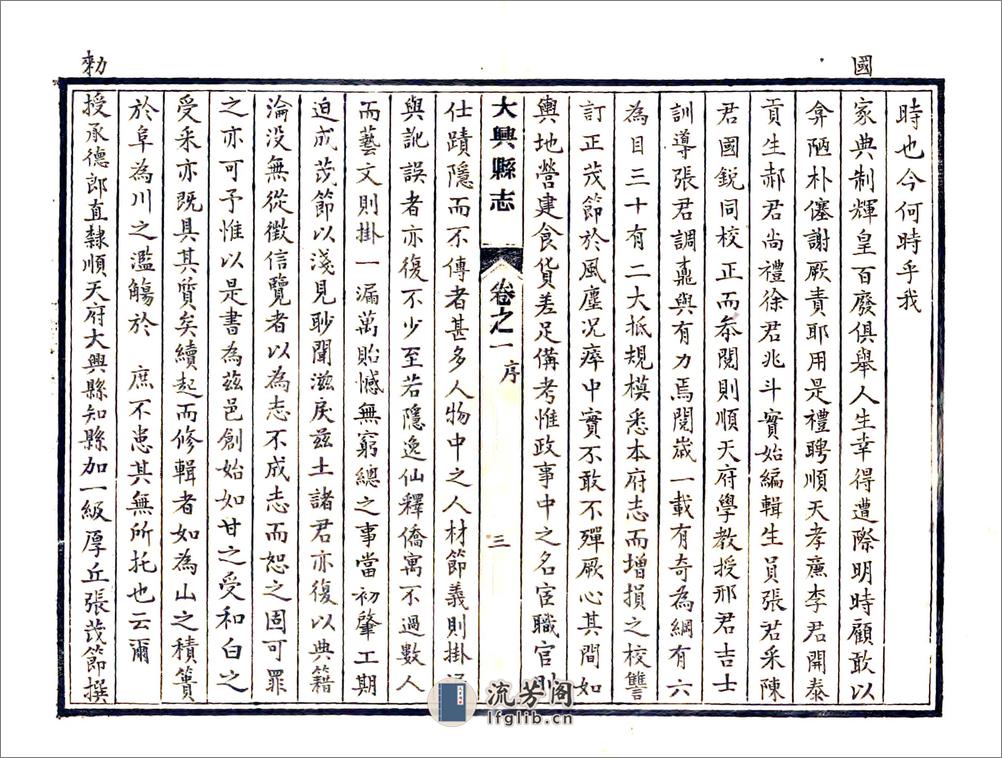 時也今何時乎我
國
家典制輝皇百廢俱舉人生幸得遭際明時顧敢以
弇陋朴僿謝厥責耶用是禮聘順天孝廉李君開泰
貢生郝君尚禮徐君兆斗實始編輯生員張君采陳
君國銳同校正而叅閱則順天府學教授邢君吉士
訓導張君調鼎與有力焉閱歲一載有奇為綱有六
為目三十有二大抵規模悉本府志而增損之校讐
訂正茂節於風塵况瘁中實不敢不殫厥心其間如
輿地營建食貨差足備考惟政事中之名宦職官則
大興縣志 卷之一 序 三
仕蹟隱而不傳者甚多人物中之人材節義則掛
與訛誤者亦復不少至若隱逸仙釋僑寓不過數人
而藝文則掛一漏萬貽憾無窮總之事當初肇工期
迫成茂節以淺見尠聞滋戾茲土諸君亦復以典籍
淪没無從徵信覽者以為志不成志而恕之固可罪
之亦可予惟以是書為茲邑創始如甘之受和白之
受采亦既具其質矣續起而修輯者如為山之積簣
於阜為川之濫觴於 庶不患其無所托也云爾
勑
授承德郎直隸順天府大興縣知縣加一級厚丘張茂節撰
流芳閣
lfglib.cn